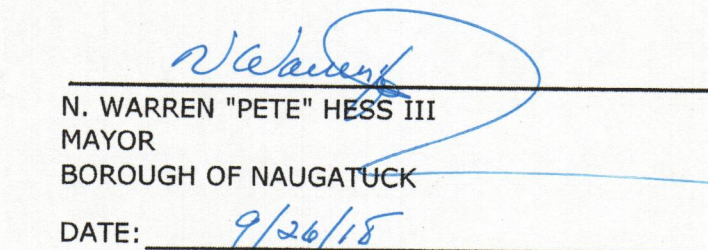 N. WARREN "PETE" HESS III
MAYOR
BOROUGH OF NAUGATUCK
DATE: 9/26/18